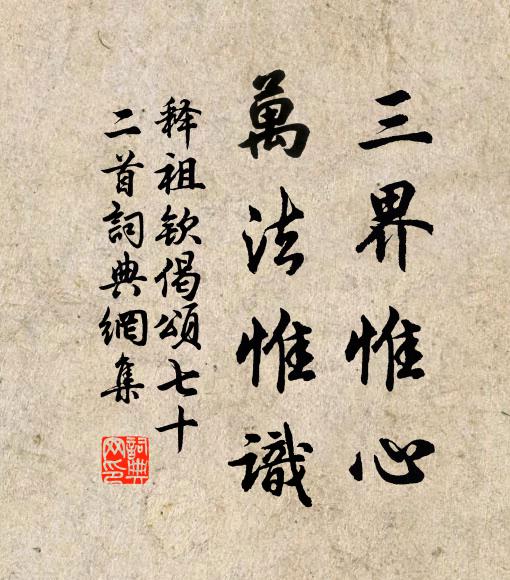 三界惟心
萬法惟識
释祖钦偈頌七十
二首詞典網集
詞典网印